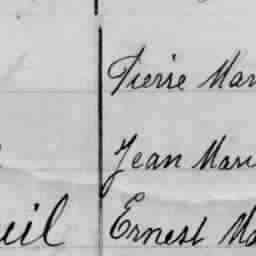 Pierre Mar
Jean Mari
euil Ernest Ma